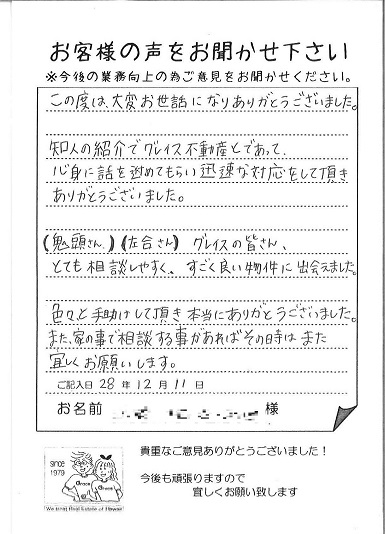 お客様の声をお聞かせ下さい
※今後の業務向上の為ご意見をお聞かせください。
この度は、大変お世話になりありがとうございました。
知人の紹介でグレイス不動産とであって、
心身に話を進めてもらい迅速な対応をして頂き
ありがとうございました。
(鬼頭さん)(左合さん)グレイスの皆さん、
とても相談しやすく、すごく良い物件に出会えました。
色々と手助けして頂き本当にありがとうございました。
また、家の事で相談する事があればその時はまた
宜しくお願いします。
ご記入日 28年12月11日
お名前 様
since
1979
貴重なご意見ありがとうございました!
今後も頑張りますので
宜しくお願い致します
We bring Real Estate of flower